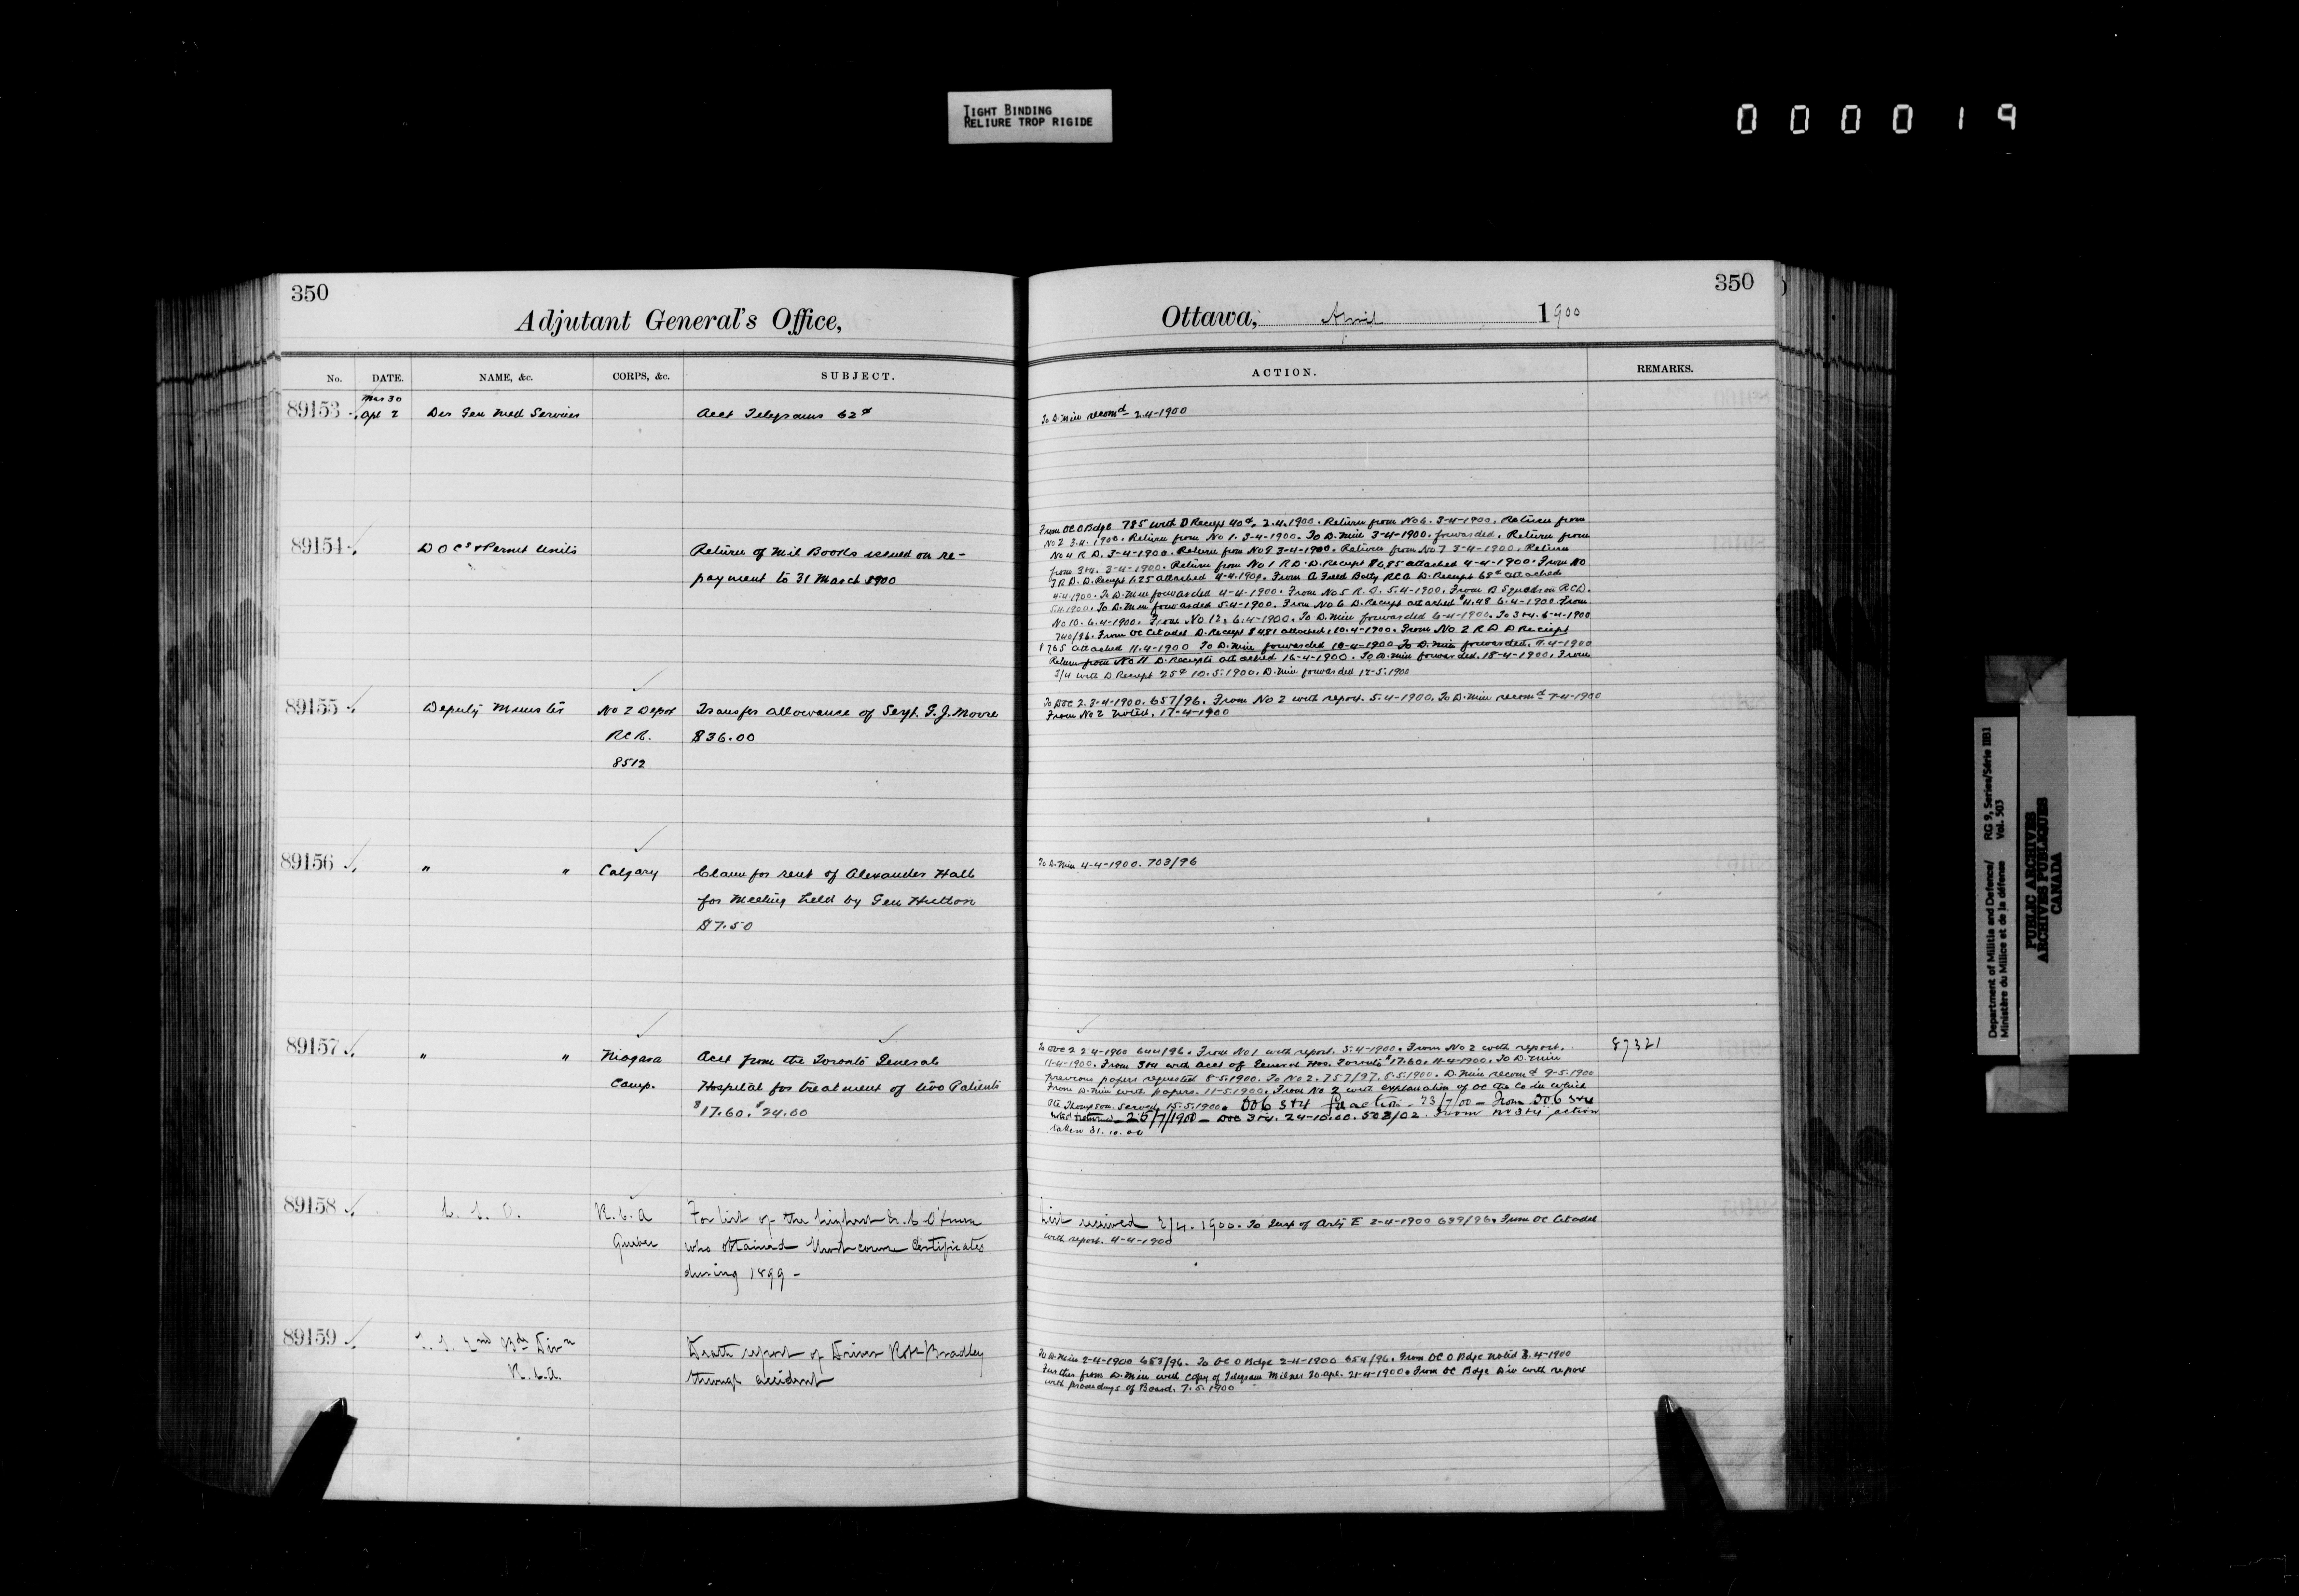 TIGHT BINDING
RELIURE TROP RIGIDE
000019
350
Adjutant General's Office,
No. DATE. NAME, &c. CORPS, &c. SUBJECT.
Mar 30
89153 Apl 2 Gen Med Services Acct Telegrams 62¢
89154 D O Cs & Permt Units Return of Mil Books issued on re-
payment to 31 March 1900
89155 Deputy Minister No 2 Depot Transfer allowance of Sergt. F. J. Moore
RCR. $36.00
8512
89156 " " Calgary Claim for rent of Alexander Hall
for Meeting held by Gen Hutton
$7.50
89157 " " Niagara Acct from the Toronto General
Camp. Hospital for treatment of two Patients
$17.60. $24.00
89158 R. C. A For list of the
Quebec who obtained Short course Certificates
during 1899 -
89159 2nd Bde Divn Death report of Driver Robt Bradley
R.C.A. through accident
350
Ottawa, April 1900
ACTION. REMARKS.
To D. Min recomd 2-4-1900
From OC O Bdge 785 with D Receipt 40¢. 2.4.1900. Return from No 6. 3-4-1900. Return from
No 2 3.4.1900. Return from No 1. 3-4-1900. To D. Min 3-4-1900. forwarded. Return from
No 4 R D. 3-4-1900. Return from No 9 3-4-1900. Return from No 7 3-4-1900. Return
from 3+4. 3-4-1900. Return from No 1 R D. D. Receipt attached 4-4-1900. From No
3 R D. D. Receipt 1.25 attached 4-4-1900. From A Field Batty RCA D. Receipt 68¢ attached
4-4-1900. To D. Min forwarded 4-4-1900. From No 5 R. D. 5.4-1900. From B Squadron RCD.
5.4.1900. To D. Min forwarded 5.4-1900. From No 6 D. Receipt attached $4.48 6-4-1900. From
No 10. 6.4-1900. From No 12. 6.4-1900. To D. Min forwarded 6-4-1900. To 3+4. 6-4-1900
740/96. From OC Citadel D. Receipt attached. 10.4-1900. From No 2 R D D Receipt
attached 11.4-1900 To D. Min forwarded 10-4-1900 To D. Min forwarded. 4-1900
Return from No 11 D. Receipts attached 16-4-1900. To D. Min forwarded. 18-4-1900. From
3/4 with D Receipt 25¢ 10.5.1900. D. Min forwarded 12-5.1900
To DOC 2. 3-4-1900. 657/96. From No 2 with report. 5.4-1900. To D. Min recomd 7-4-1900
From No 2 Noted. 17-4-1900
To D. Min 4-4-1900. 703/96
To DOC 2 2.4-1900 644/96. From No 1 with report. 5.4-1900. From No 2 with report. 87321
11-4-1900. From 3+4 with acct of General Hos. Toronto $17.60. 11-4-1900. To D. Min
previous papers requested 8.5.1900. To No 2. 757/97. 8.5.1900. D. Min recomd 9-5.1900
From D. Min with papers. 11-5.1900. From No 2 with explanation of OC the Co in which
Pte Thompson served. 15.5.1900. DOC 3+4 for action. 23/7/00 - From DOC 3+4
25/7/1900 - DOC 3+4. 24-10.00. 503/02. From No 3+4 action
taken 31.10.00
List received 2/4.1900. To Inspr of Arty E 2-4-1900 639/96. From OC Citadel
with report. 4-4-1900
To D. Min 2-4-1900 653/96. To OC O Bdge 2-4-1900 654/96. From OC O Bdge Noted 3.4-1900
Further from D. Min with copy of Telegram Milner 20 apl. 21-4-1900. From OC Bdge Div with report
with proceedings of Board. 7.5.1900
Department of Militia and Defence/ RG 9, Series/Série IIB1
Ministère du Milice et de la défense Vol. 503
PUBLIC ARCHIVES
ARCHIVES PUBLIQUES
CANADA